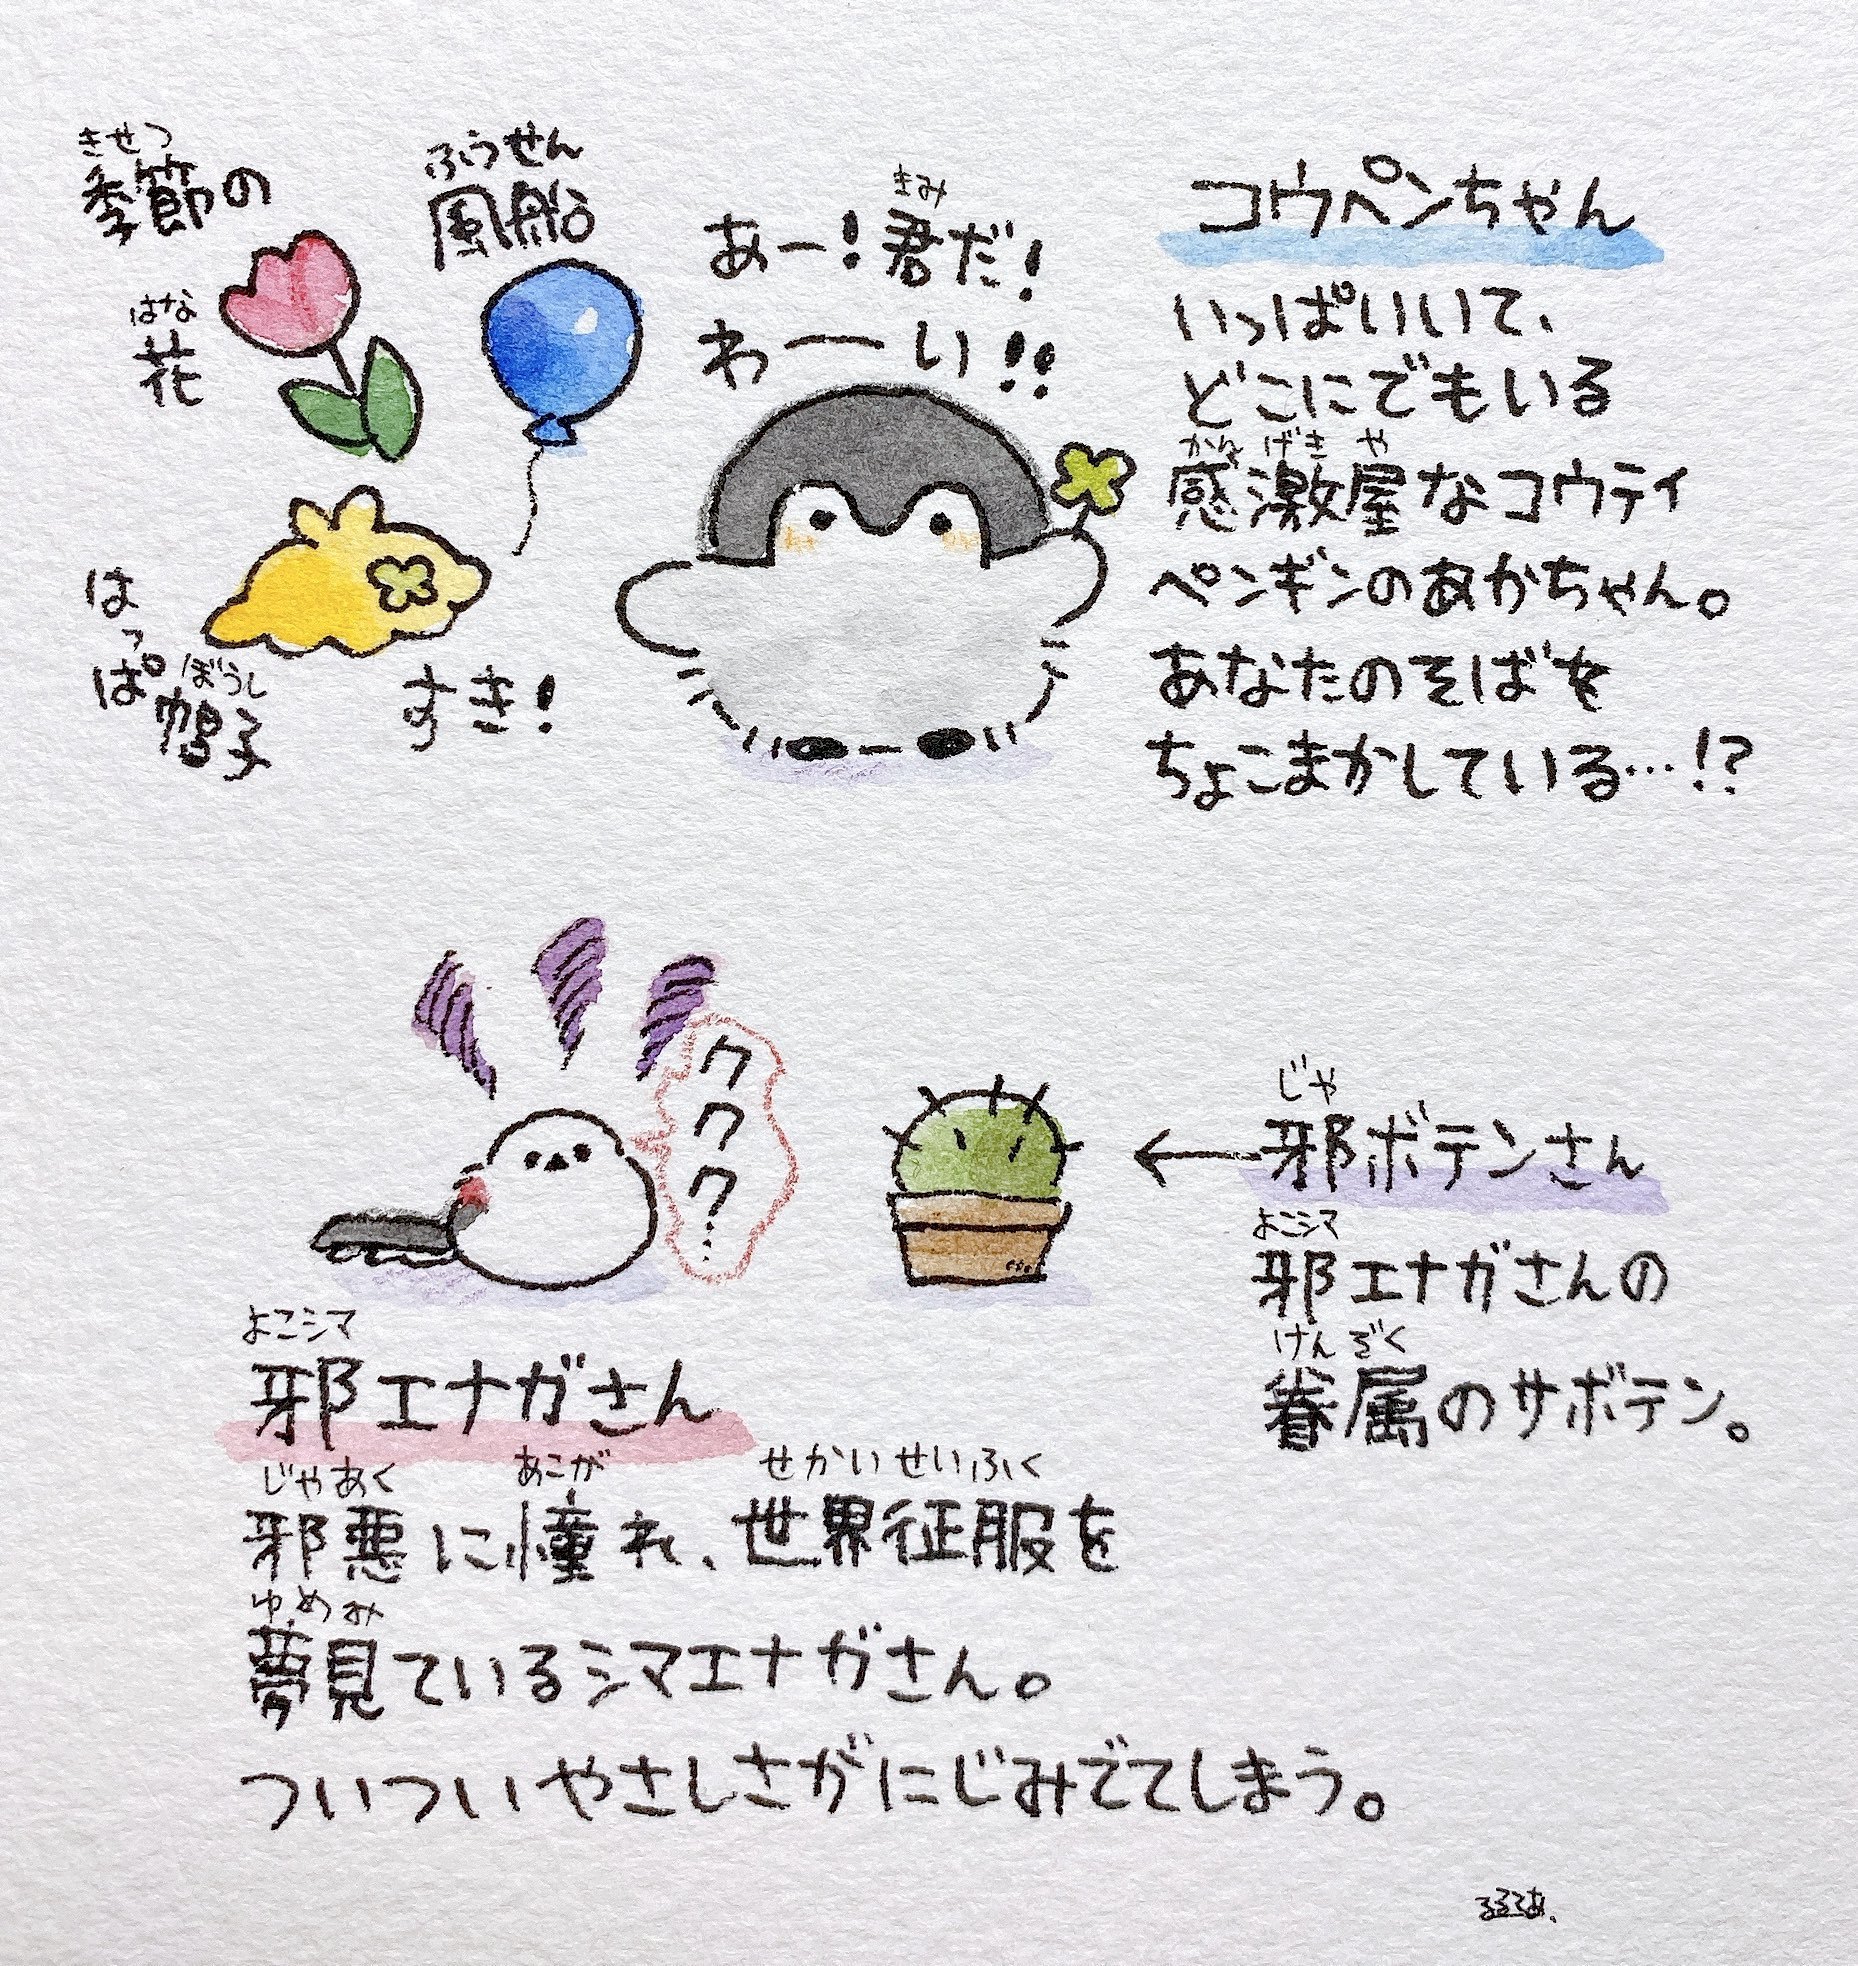 きせつ
季節の
はな
花
ふうせん
風船
はっぱ
ぼうし
帽子
すき!
きみ
あー!君だ!
わーい!!
コウペンちゃん
いっぱいいて、
どこにでもいる
かんげきや
感激屋なコウテイ
ペンギンのあかちゃん。
あなたのそばを
ちょこまかしている…!?
ククク?……
じゃ
←邪ボテンさん
よこシマ
邪エナガさんの
けんぞく
眷属のサボテン。
よこシマ
邪エナガさん
じゃあく あこが せかいせいふく
邪悪に憧れ、世界征服を
ゆめみ
夢見ているシマエナガさん。
ついついやさしさがにじみでてしまう。
るるてあ、